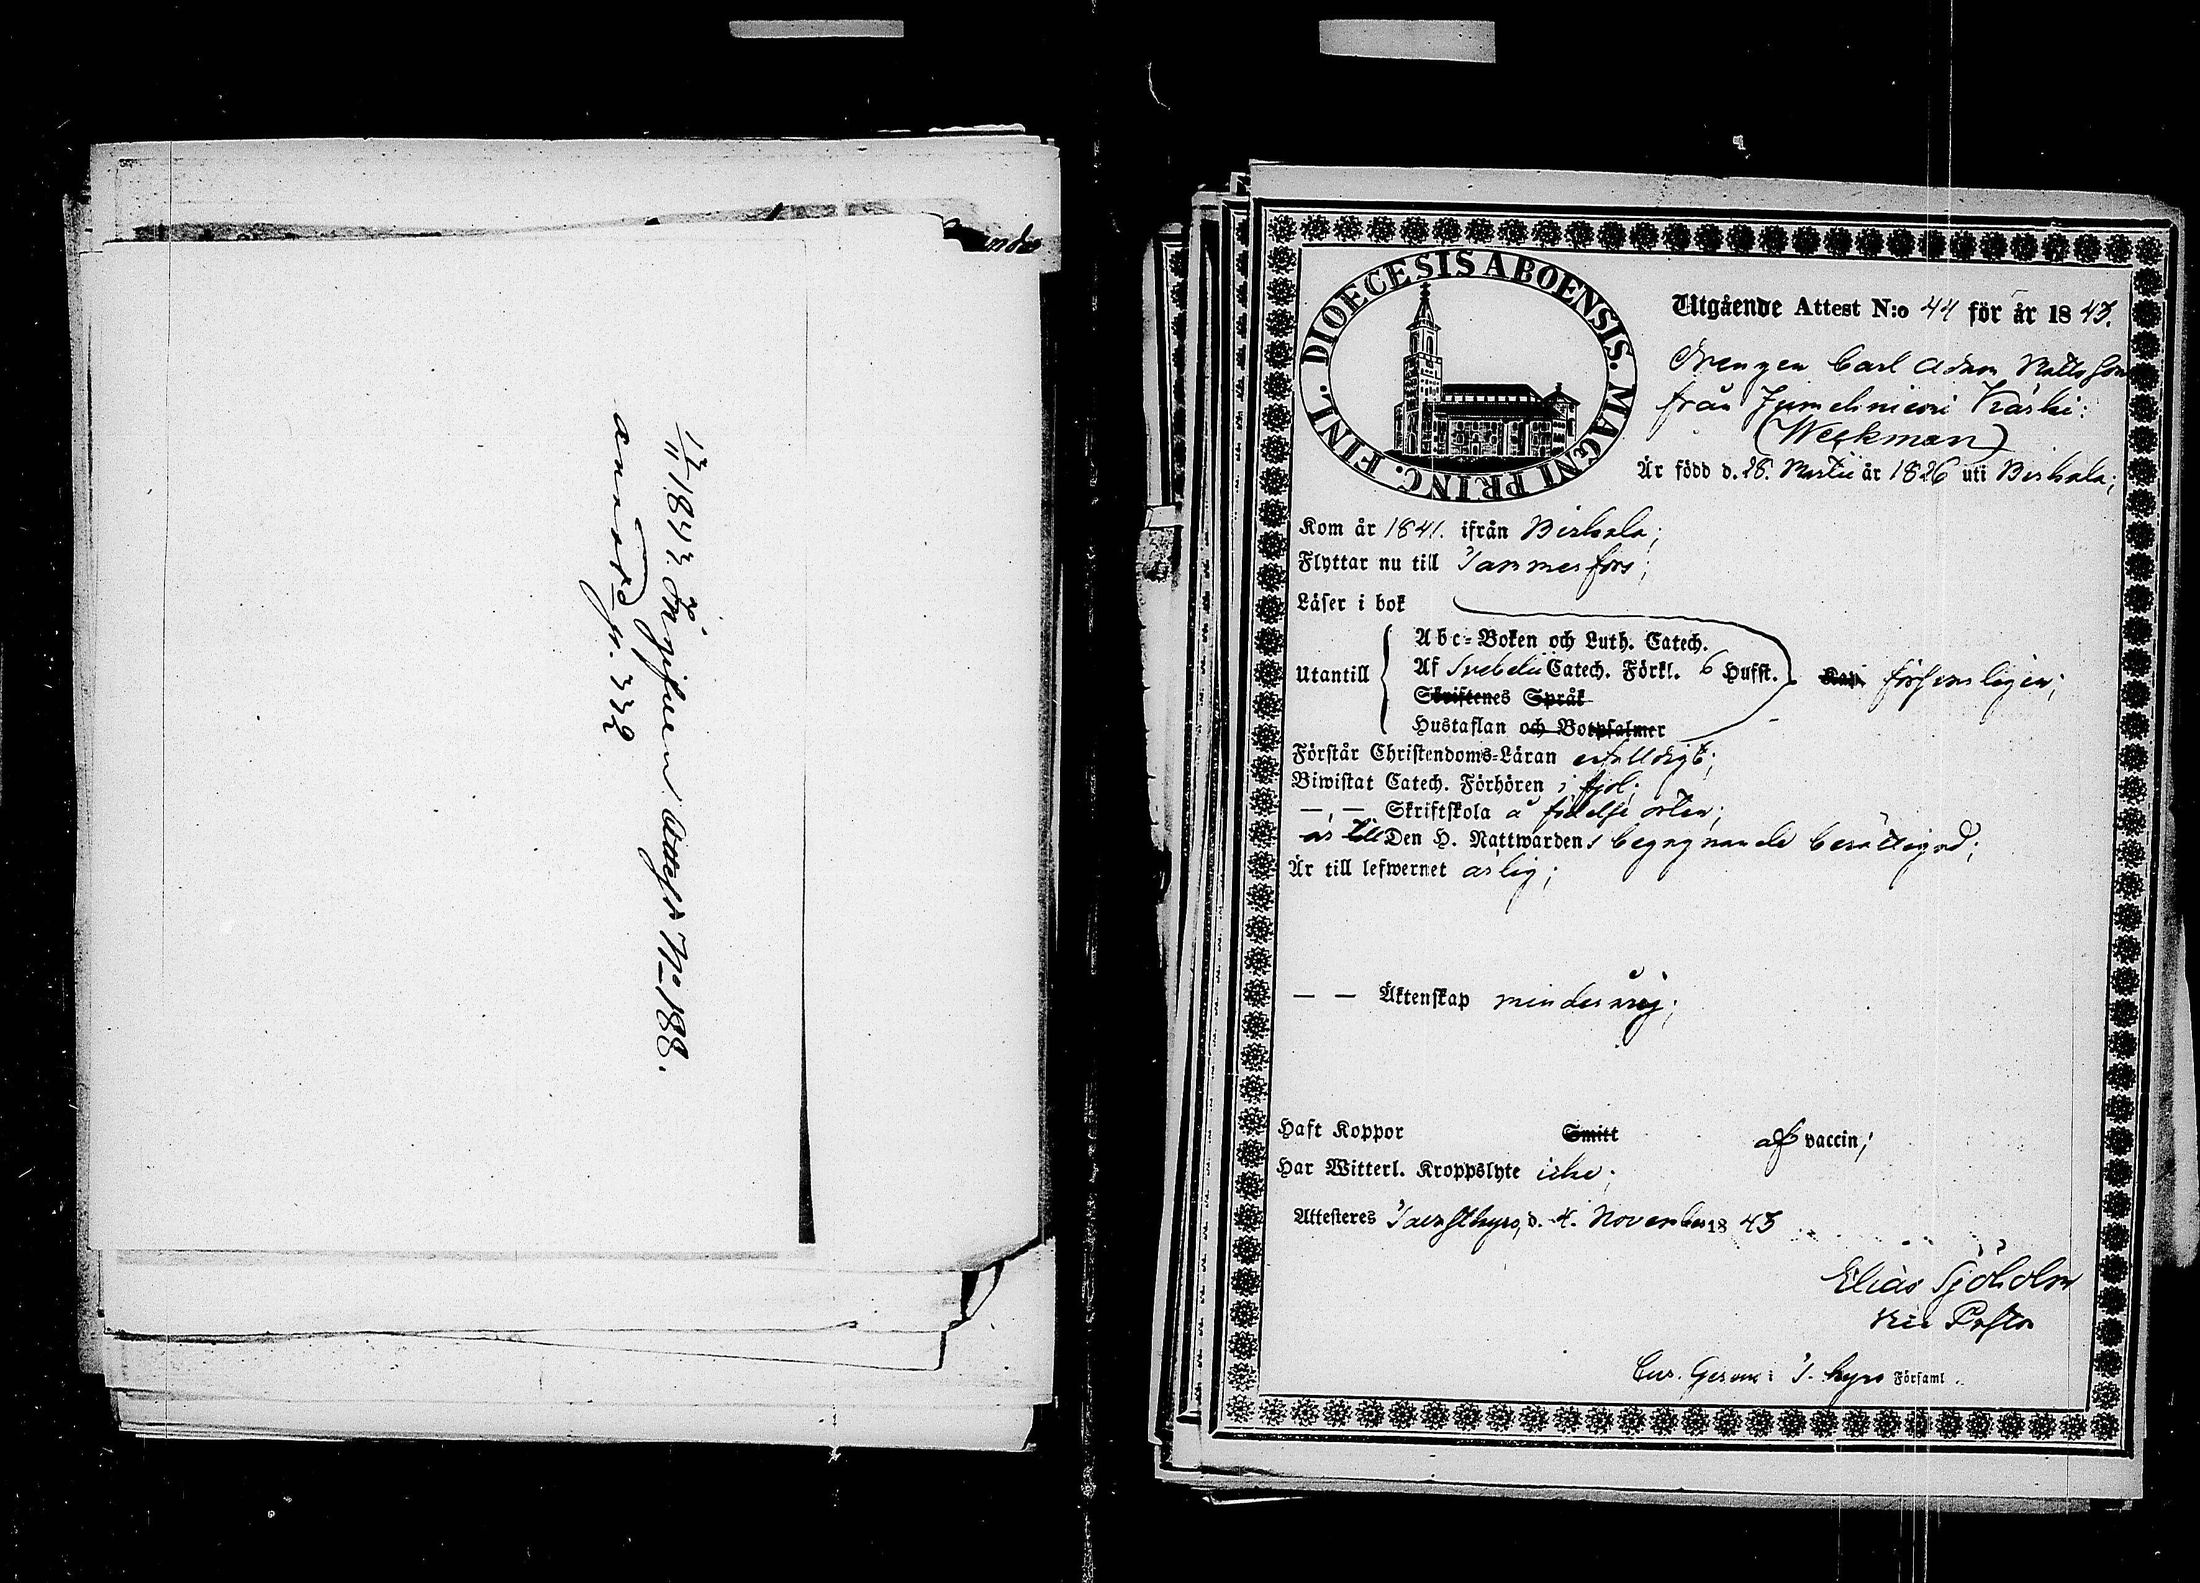 13/11 1843. Ingifven Attest No 188.
p. 332
DIOECESIS ABOENSIS. MAGNI PRINC. FINL.
Utgående Attest N:o 44 för år 1843.
Drengen Carl Adam Mattsson
från Jumelniemi Käski:
(Weckman)
Är född d. 28. Martii år 1826 uti Birkala;
Kom år 1841. ifrån Birkala;
Flyttar nu till Tammerfors;
Läser i bok
Abc-Boken och Luth. Catech.
Utantill Af Svebelii Catech. Förkl. 6 Hufst. Kan försvarligen;
Skriftenes Språk
Hustaflan och Botpsalmer
Förstår Christendoms-Läran enfaldigt;
Biwistat Catech. Förhören i fjol;
— , — Skriftskola å födelse orten;
är till Den H. Nattwardens begagnande berättigad;
Är till lefwernet ärlig;
— — Äktenskap minderårig;
Haft Koppor Smitt af vaccin;
Har Witterl. Kroppslyte icke;
Attesteres Tavastkyro, d. 4. November 1843
Elias Sjöholm
Vice Pastor
i T. kyro Församl.